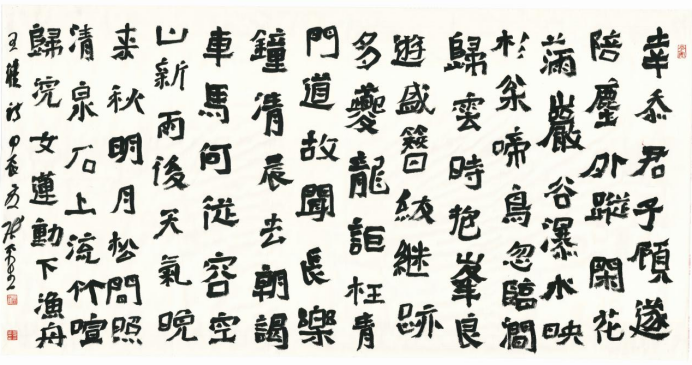 幸忝君子顧遂
陪塵外蹤閑花
滿巖谷瀑水映
杉枀啼鳥忽臨澗
歸雲時抱峯良
遊盛簪紱繼跡
多夔龍詎枉青
門道故聞長樂
鐘清晨去朝謁
車馬何從容空
山新雨後天氣晚
来秋明月松間照
清泉石上流竹喧
歸浣女蓮動下漁舟
王維詩甲辰夏